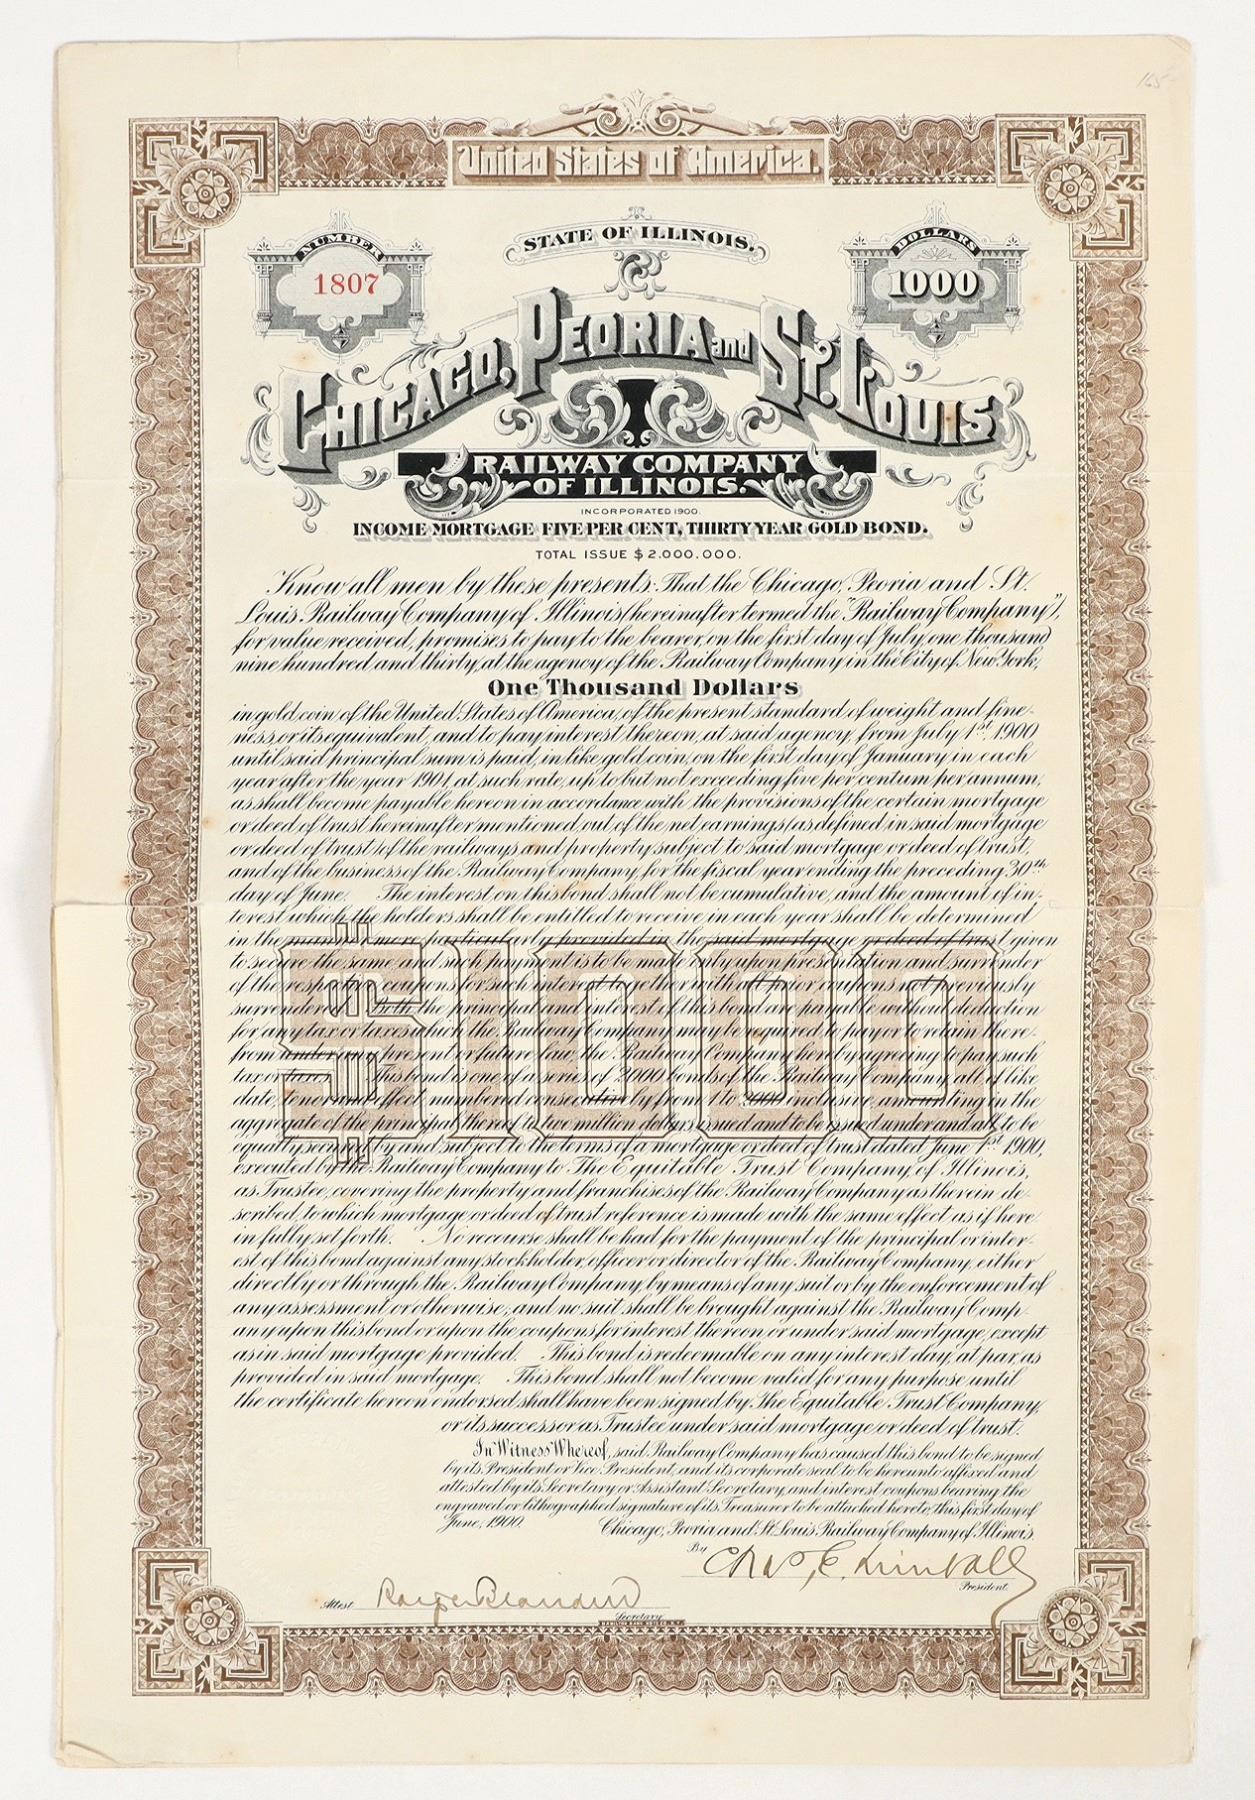 165
United States of America.
STATE OF ILLINOIS.
NUMBER
1807
DOLLARS
1000
CHICAGO, PEORIA and ST. LOUIS
RAILWAY COMPANY
OF ILLINOIS.
INCORPORATED 1900.
INCOME MORTGAGE FIVE PER CENT, THIRTY YEAR GOLD BOND.
TOTAL ISSUE $2.000.000.
Know all men by these presents: That the Chicago, Peoria and St.
Louis Railway Company of Illinois (hereinafter termed the "Railway Company"),
for value received, promises to pay to the bearer, on the first day of July one thousand
nine hundred and thirty, at the agency of the Railway Company in the City of New York,
One Thousand Dollars
in gold coin of the United States of America, of the present standard of weight and fine-
ness or its equivalent, and to pay interest thereon, at said agency, from July 1st 1900
until said principal sum is paid, in like gold coin, on the first day of January in each
year after the year 1901, at such rate, up to but not exceeding five per centum per annum,
as shall become payable hereon in accordance with the provisions of the certain mortgage
or deed of trust hereinafter mentioned, out of the net earnings (as defined in said mortgage
or deed of trust) of the railways and property subject to said mortgage or deed of trust,
and of the business of the Railway Company, for the fiscal year ending the preceding 30th
day of June. The interest on this bond shall not be cumulative, and the amount of in-
terest which the holders shall be entitled to receive in each year shall be determined
in the manner more particularly provided in the said mortgage or deed of trust given
to secure the same, and such payment is to be made only upon presentation and surrender
of the respective coupons for such interest together with all prior coupons not previously
surrendered. Both the principal and interest of this bond are payable without deduction
for any tax or taxes which the Railway Company may be required to pay or to retain there-
from under any present or future law, the Railway Company hereby agreeing to pay such
tax or taxes. This bond is one of a series of 2000 bonds of the Railway Company, all of like
date, tenor and effect, numbered consecutively from 1 to 2000 inclusive, amounting in the
aggregate of the principal thereof to two million dollars issued and to be issued under and all to be
equally secured by and subject to the terms of a mortgage or deed of trust dated June 1st 1900,
executed by the Railway Company to The Equitable Trust Company, of Illinois,
as Trustee, covering the property and franchises of the Railway Company as therein de-
scribed, to which mortgage or deed of trust reference is made with the same effect as if here-
in fully set forth. No recourse shall be had for the payment of the principal or inter-
est of this bond against any stockholder, officer or director of the Railway Company, either
directly or through the Railway Company, by means of any suit or by the enforcement of
any assessment or otherwise, and no suit shall be brought against the Railway Comp-
any upon this bond or upon the coupons for interest thereon or under said mortgage, except
as in said mortgage provided. This bond is redeemable on any interest day, at par, as
provided in said mortgage. This bond shall not become valid for any purpose until
the certificate hereon endorsed shall have been signed by The Equitable Trust Company,
or its successor as Trustee under said mortgage or deed of trust.
$1000
In Witness Whereof, said Railway Company has caused this bond to be signed
by its President or Vice President, and its corporate seal to be hereunto affixed and
attested by its Secretary or Assistant Secretary, and interest coupons bearing the
engraved or lithographed signature of its Treasurer to be attached hereto, this first day of
June, 1900. Chicago, Peoria and St. Louis Railway Company of Illinois.
By Chas. E. Kimball
President.
Attest
Secretary.